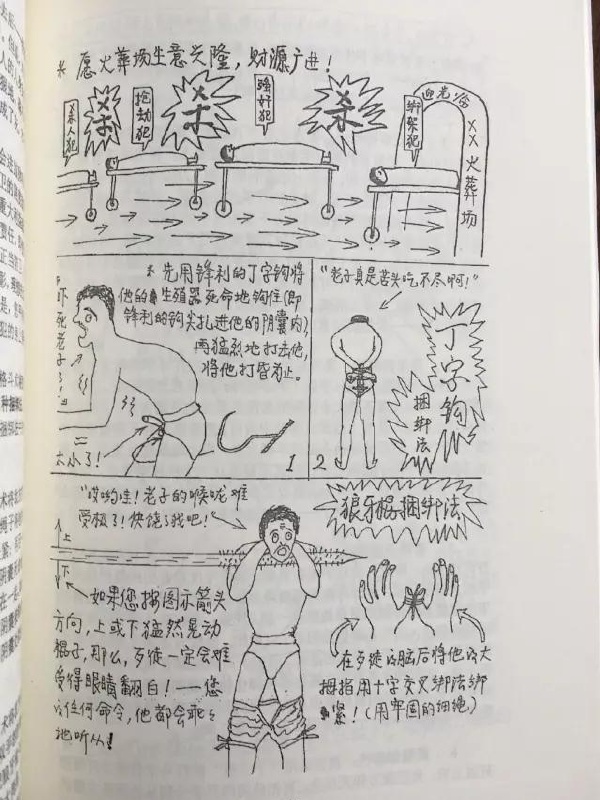 * 愿火葬场生意兴隆，财源广进！
杀人犯
杀
抢劫犯
杀
强奸犯
杀
绑架犯
迎光临
XX火葬场
吓死老子了！
* 先用锋利的丁字钩将
他的生殖器死命地钩住(即
锋利的钩尖扎进他的阴囊内)，
再猛烈地打击他，
将他打昏为止。
太小了！
1
"老子真是苦头吃不尽啊！"
丁字钩
捆绑法
2
"哎哟哇！老子的喉咙难
受极了！快饶了我吧！"
狼牙棍捆绑法
上
下
如果您按图示箭头
方向，上或下猛然晃动
棍子，那么，歹徒一定会难
受得眼睛翻白！——您
的任何命令，他都会乖乖
地听从！
在歹徒的脑后将他的大
拇指用十字交叉绑法绑
紧！(用牢固的细绳。)